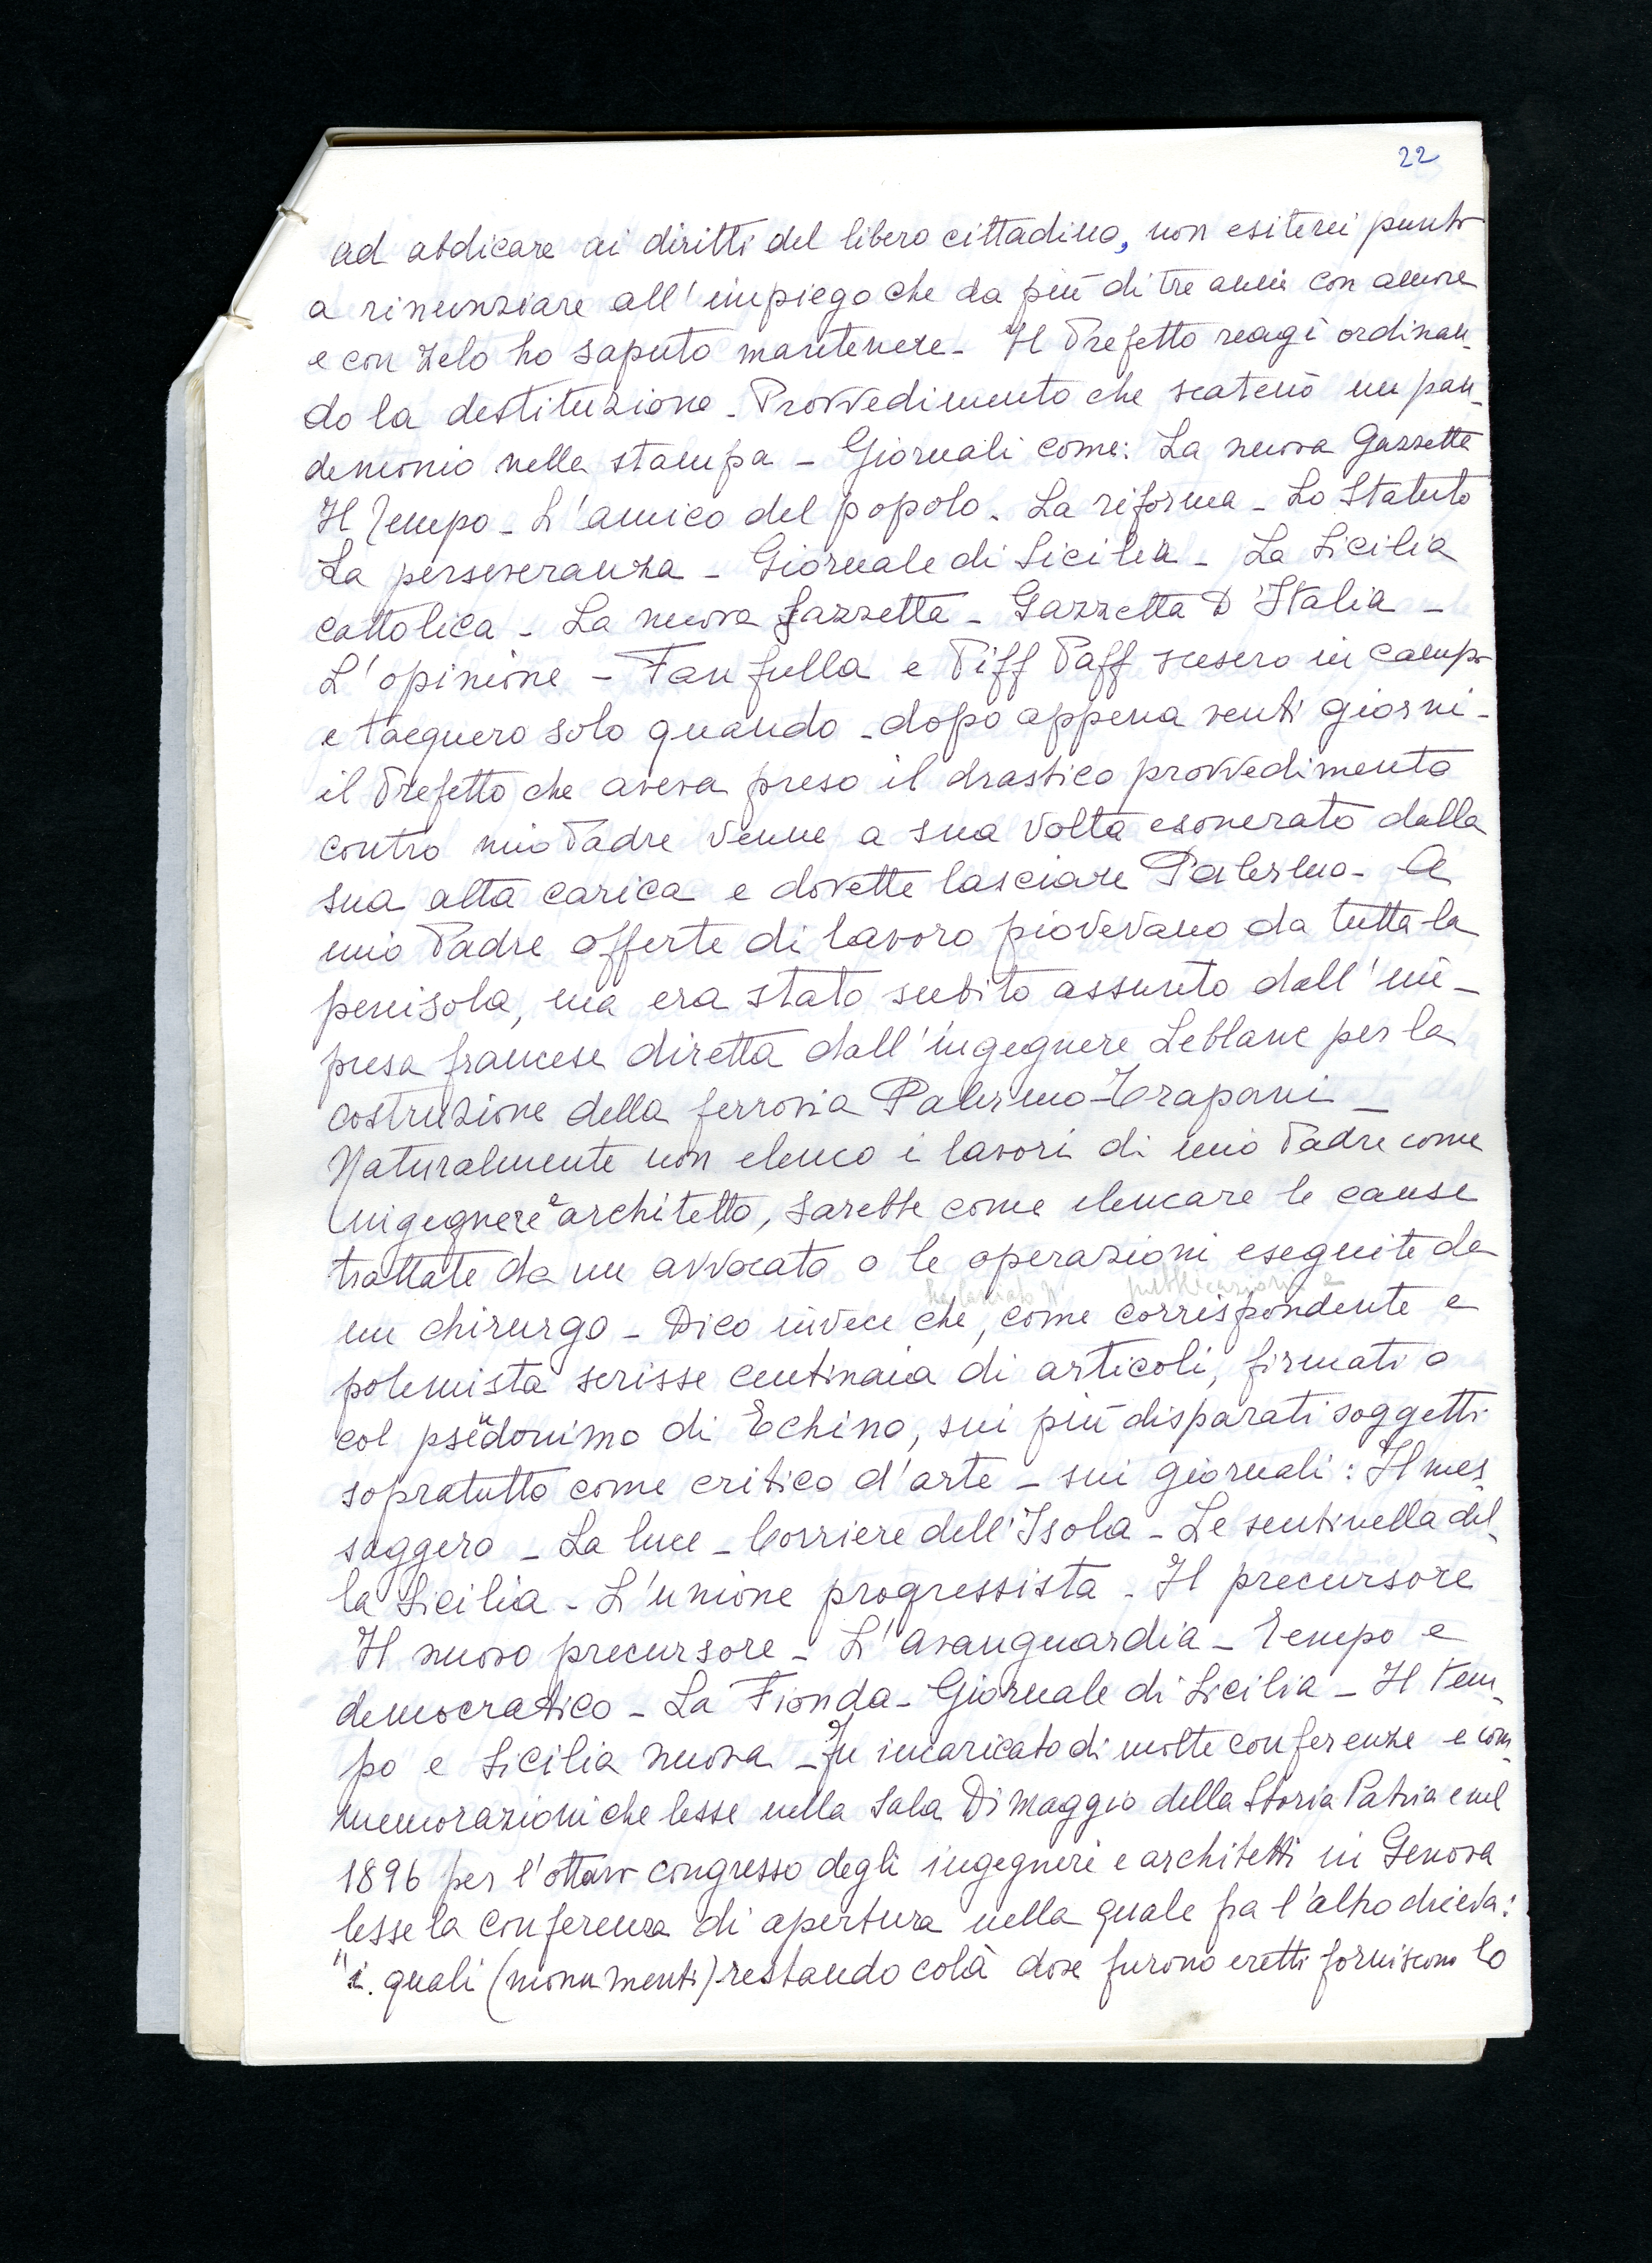 22
ad abdicare ai diritti del libero cittadino, non esiterei punto
a rinunziare all'impiego che da più di tre anni con amore
e con zelo ho saputo mantenere - Il Prefetto reagì ordinan-
do la destituzione - Provvedimento che scatenò un pan-
demonio nella stampa - Giornali come: La nuova Gazzetta
Il Tempo - L'amico del popolo - La riforma - Lo Statuto
La perseveranza - Giornale di Sicilia - La Sicilia
cattolica - La nuova gazzetta - Gazzetta D'Italia -
L'opinione - Fanfulla e Piff Paff scesero in campo
e tacquero solo quando - dopo appena venti giorni -
il Prefetto che aveva preso il drastico provvedimento
contro mio Padre venne a sua volta esonerato dalla
sua alta carica e dovette lasciare Palermo - A
mio Padre offerte di lavoro piovevano da tutta la
penisola, ma era stato subito assunto dall'im-
presa francese diretta dall'ingegnere Leblanc per la
costruzione della ferrovia Palermo-Trapani -
Naturalmente non elenco i lavori di mio Padre come
ingegnere e architetto, sarebbe come elencare le cause
trattate da un avvocato o le operazioni eseguite da
pubblicazioni e
un chirurgo - Dico invece che, come corrispondente e
polemista scrisse centinaia di articoli, firmati o
col pseudonimo di Echino, sui più disparati soggetti
sopratutto come critico d'arte - sui giornali: Il mes-
saggero - La luce - Corriere dell'Isola - Le sentinella del-
la Sicilia - L'unione progressista - Il precursore
Il nuovo precursore - L'avanguardia - Tempo e
democratico - La Fionda - Giornale di Sicilia - Il tem-
po e Sicilia nuova - Fu incaricato di molte conferenze e com-
memorazioni che lesse nella Sala Di Maggio della Storia Patria e nel
1896 per l'ottavo congresso degli ingegneri e architetti in Genova
lesse la conferenza di apertura nella quale fra l'altro diceva:
"i quali (monumenti) restando colà dove furono eretti forniscono lo